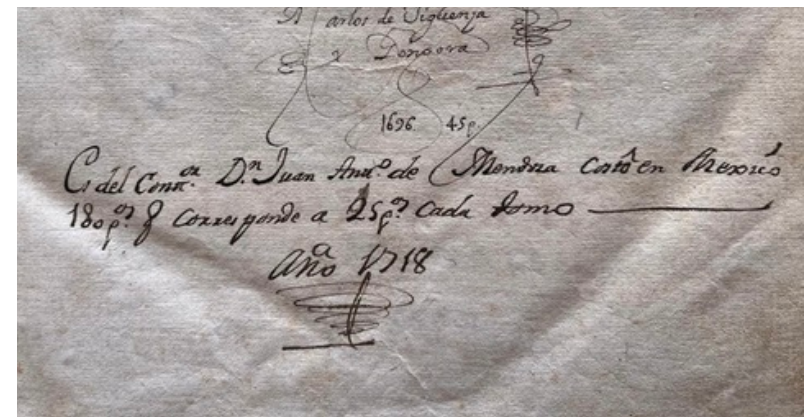 D Carlos de Sigüenza
y Gongora
1696 45p.
Es del Conn.or D.n Juan Ant.o de Mendoza Costô en Mexico
180p.os q corresponde a 25p.os Cada tomo
Año 1718